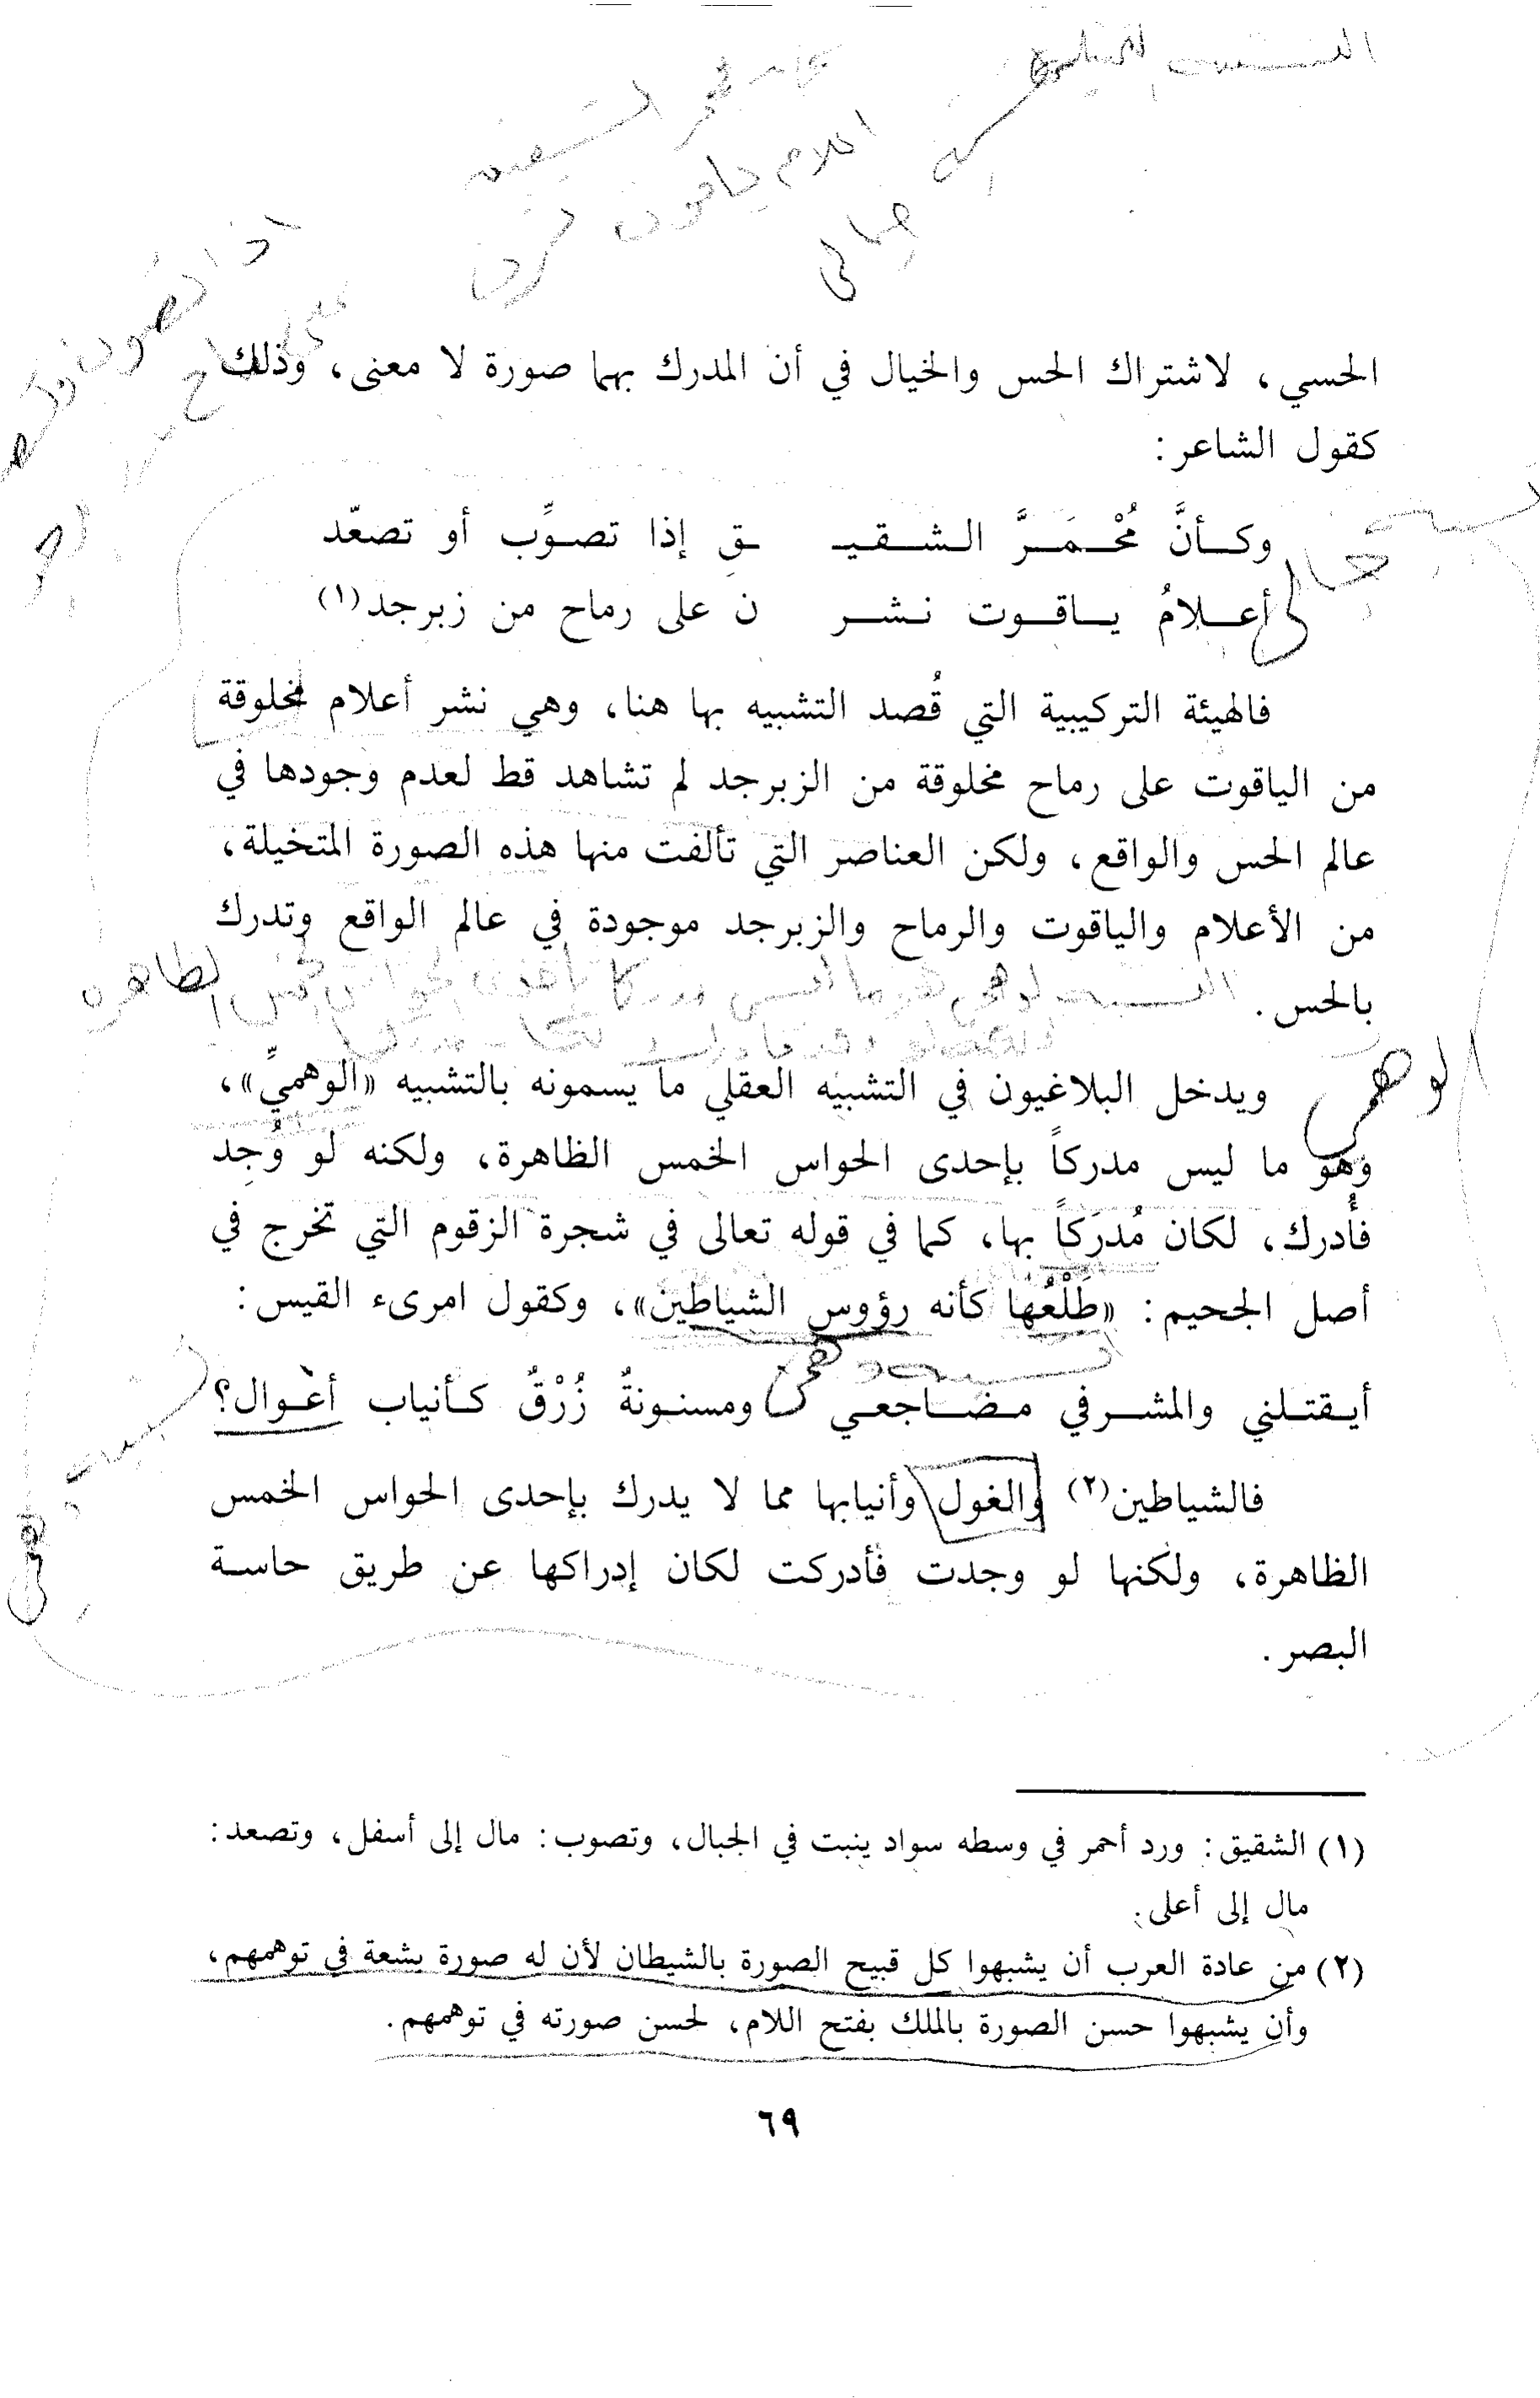 الحسي، لاشتراك الحس والخيال في أن المدرك بهما صورة لا معنى، وذلك
كقول الشاعر:
وكأنَّ مُحْمَرَّ الشقيـ ـقِ إذا تصوِّب أو تصعّد
أعلامُ ياقوت نشر ن على رماح من زبرجد(١)
فالهيئة التركيبية التي قُصد التشبيه بها هنا، وهي نشر أعلام مخلوقة
من الياقوت على رماح مخلوقة من الزبرجد لم تشاهد قط لعدم وجودها في
عالم الحس والواقع، ولكن العناصر التي تألفت منها هذه الصورة المتخيلة،
من الأعلام والياقوت والرماح والزبرجد موجودة في عالم الواقع وتدرك
بالحس.
ويدخل البلاغيون في التشبيه العقلي ما يسمونه بالتشبيه «الوهميِّ»،
وهو ما ليس مدركاً بإحدى الحواس الخمس الظاهرة، ولكنه لو وُجِد
فأُدرك، لكان مُدرَكاً بها، كما في قوله تعالى في شجرة الزقوم التي تخرج في
أصل الجحيم: «طَلْعُها كأنه رؤوس الشياطين»، وكقول امرىء القيس:
أيقتلني والمشرفي مضاجعي ومسنونةٌ زُرْقٌ كأنياب أغوال؟
فالشياطين(٢) والغول وأنيابها مما لا يدرك بإحدى الحواس الخمس
الظاهرة، ولكنها لو وجدت فأدركت لكان إدراكها عن طريق حاسة
البصر.
(١) الشقيق: ورد أحمر في وسطه سواد ينبت في الجبال، وتصوب: مال إلى أسفل، وتصعد:
مال إلى أعلى.
(٢) من عادة العرب أن يشبهوا كل قبيح الصورة بالشيطان لأن له صورة بشعة في توهمهم،
وأن يشبهوا حسن الصورة بالملك بفتح اللام، لحسن صورته في توهمهم.
٦٩